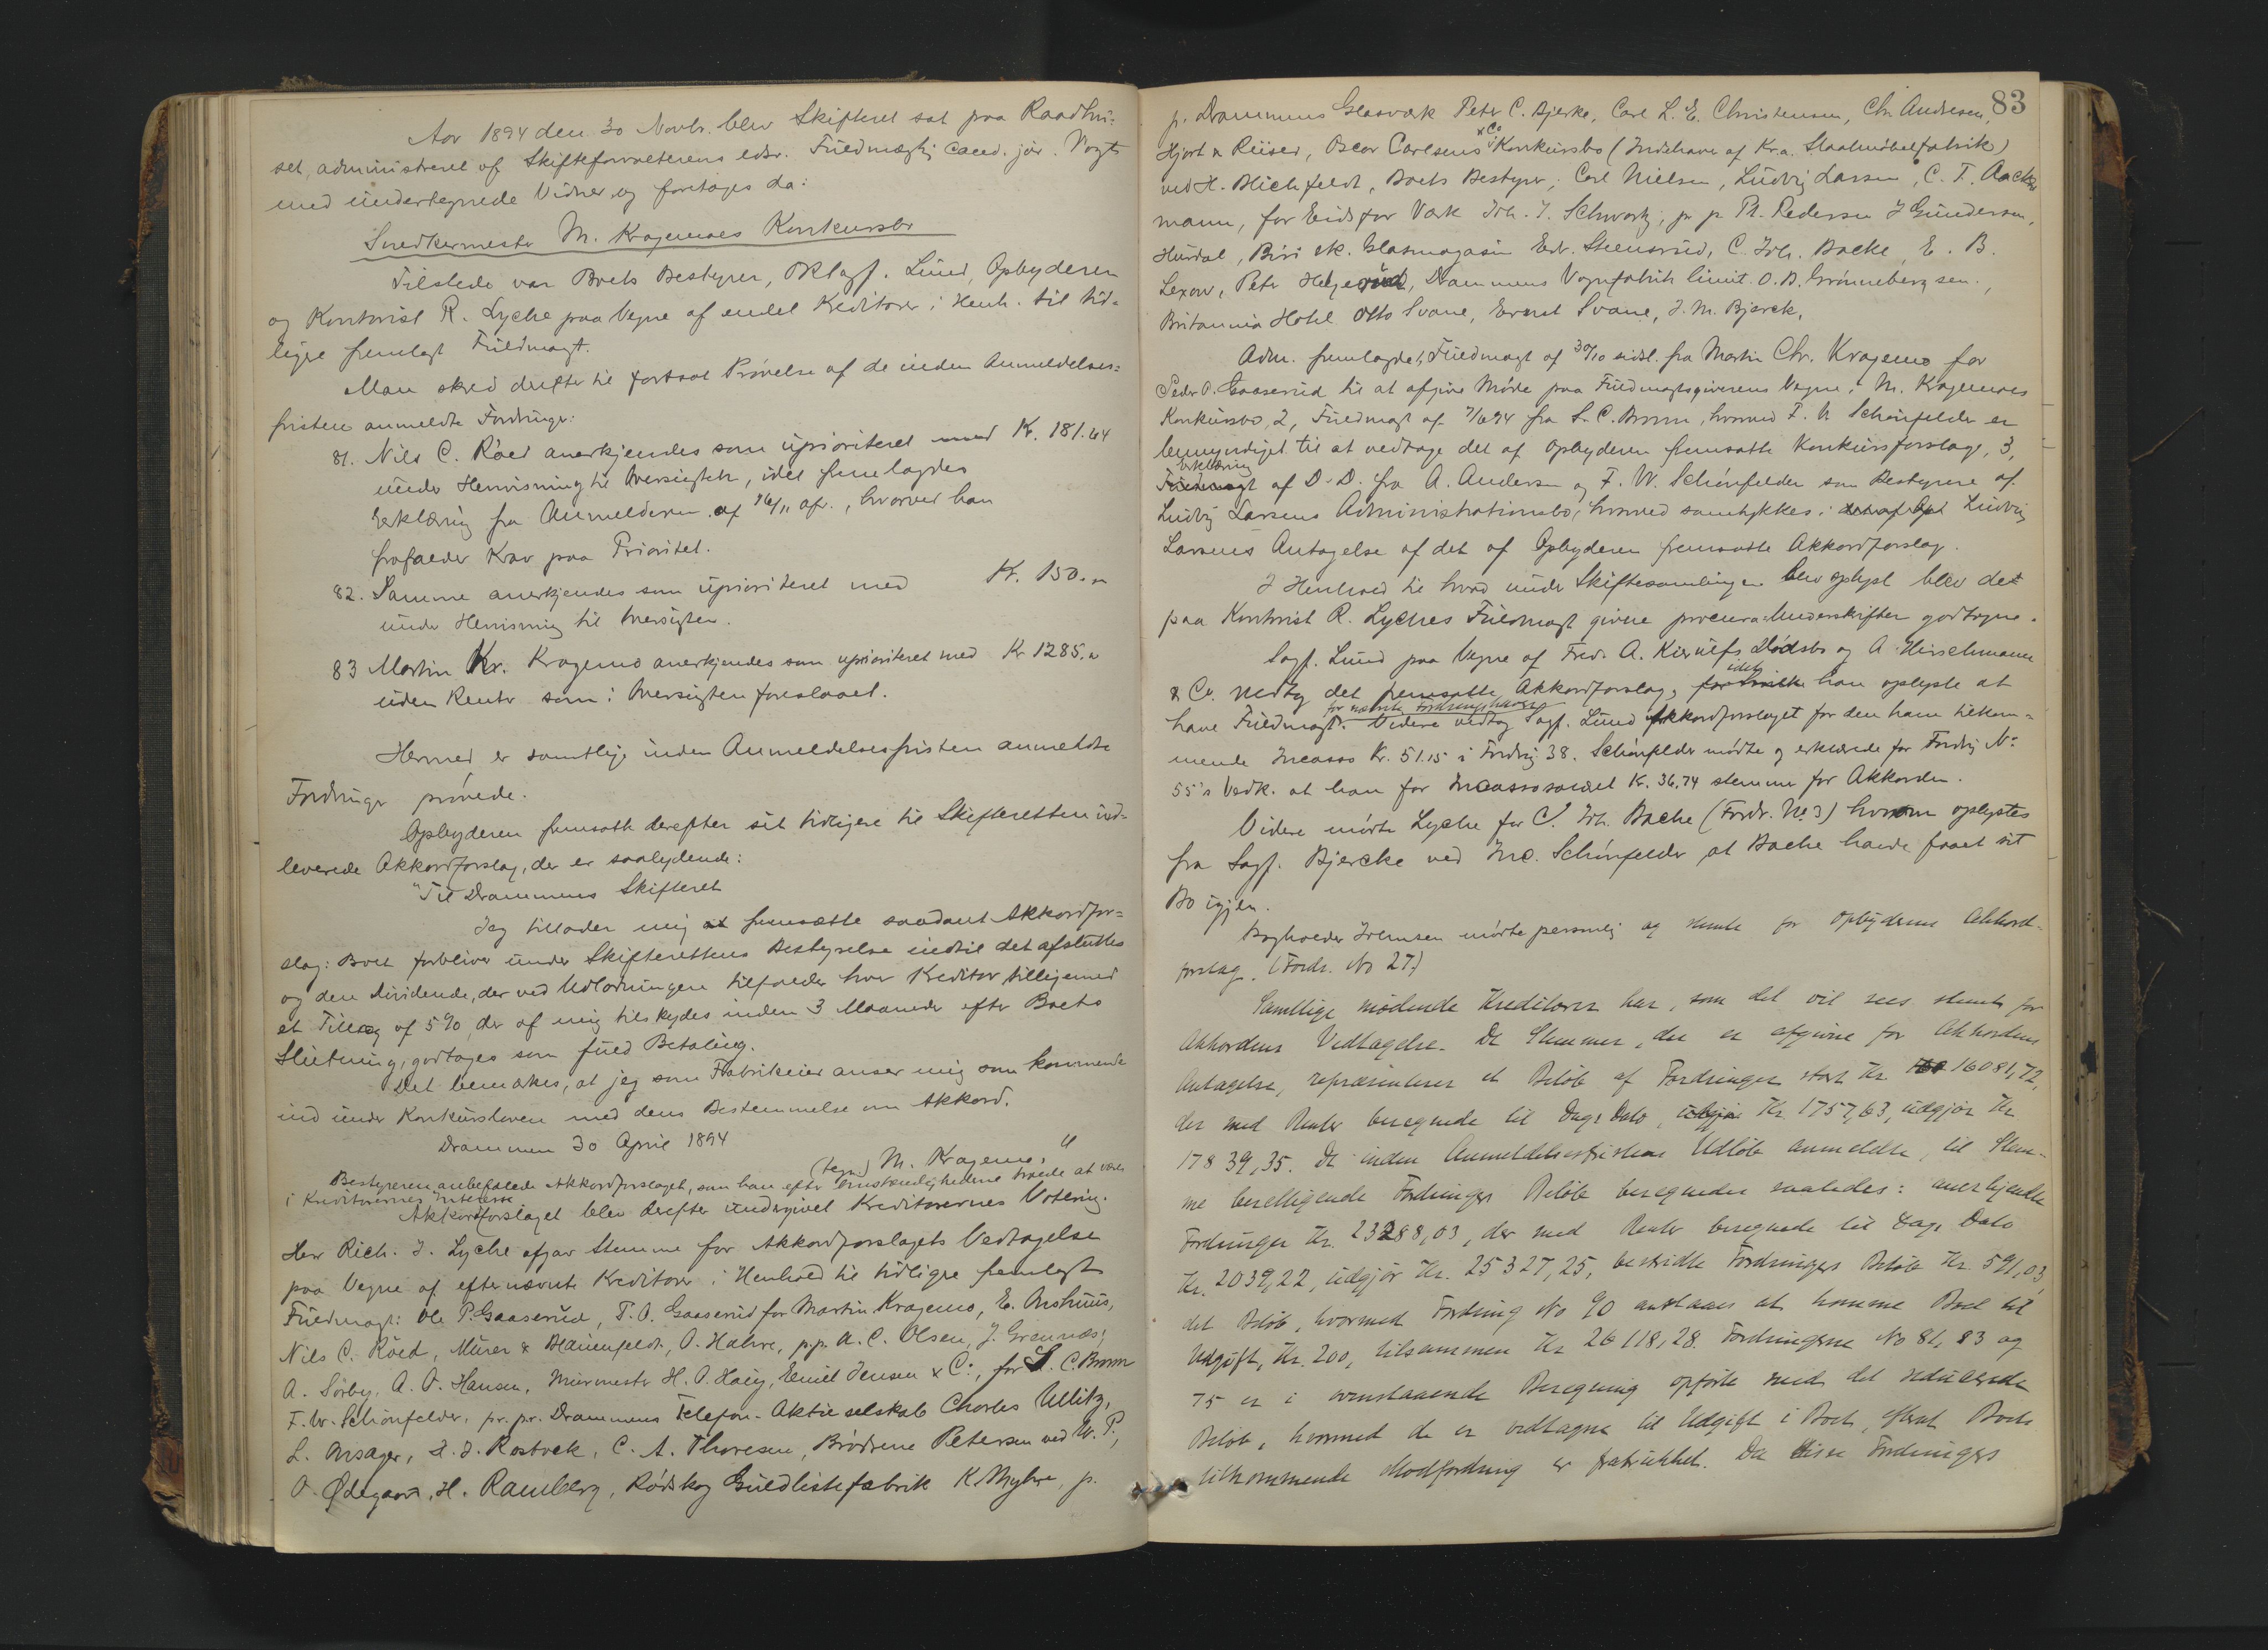 Aar 1894 den 30 Novbr. blev Skifteret sat paa Raadhu-
set, administreret af Skifteforvalterens edsv. Fuldmægtig Cand. jur. Vogt
med undertegnede Vidner og foretoges da:
Snedkermester M. Kragemoes Konkursbo
Tilstede var Boets Bestyrer, O.R.Sagf. Lund, Opbyderen
og Kontorist R. Lyche paa Vegne af endel Kreditorer i Henh. til tid-
ligere fremlagt Fuldmagt.
Man skred derefter til fortsat Prøvelse af de inden Anmeldelses-
fristen anmeldte Fordringer:
81. Nils C. Röed anerkjendes som uprioriteret med Kr. 181.44
under Henvisning til Oversigten, idet fremlagdes
Erklæring fra Anmelderen af 16/11 afr., hvorved han
frafalder Krav paa Prioritet.
82. Samme anerkjendes som uprioriteret med Kr. 150.„
under Henvisning til Oversigten.
83 Martin Kr. Kragemo anerkjendes som uprioriteret med Kr 1285.„
uden Renter som i Oversigten foreslaaet.
Hermed er samtlige inden Anmeldelsesfristen anmeldte
Fordringer prøvede.
Opbyderen fremsatte derefter sit tidligere til Skifteretten ind-
leverede Akkordforslag, der er saalydende:
"Til Drammens Skifteret
Jeg tillader mig at fremsætte saadant Akkordfor-
slag: Boet forbliver under Skifterettens Bestyrelse indtil det afsluttes
og den Dividende, der ved Udlodningen tilfalder hver Kreditor tilligemed
et Tillæg af 5%, der af mig tilskydes inden 3 Maaneder efter Boets
Slutning, godtages som fuld Betaling.
Det bemærkes, at jeg som Fabrikeier anser mig som kommende
ind under Konkursloven med dens Bestemmelse om Akkord.
Drammen 30 April 1894
(tegn.) M. Kragemo."
Bestyreren anbefalede Akkordforslaget, som han efter Omstændighederne troede at være
i Kreditorernes Interesse
Akkordforslaget blev derefter undergivet Kreditorernes Votering.
Herr Rich. J. Lyche afgav Stemme for Akkordforslagets Vedtagelse
paa Vegne af efternævnte Kreditorer i Henhold til tidligere fremlagt
Fuldmagt: Ole P. Gaaserud, P. O. Gaaserud for Martin Kragemo, E. Arshuus,
Nils C. Röed, Mürer & Blauenfeldt, O. Halvre, p.p. A. C. Olsen, J. Grennæs,
A. Sørby, A. O. Hansen, Murmester H. O. Haig, Emil Jensen & Co., for S. C. Brown
F. W. Schönfelder, pr. pr. Drammens Telefon-Aktieselskab Charles Ullitz,
L. Aasager, L. J. Rostock, C. A. Thoresen, Brødrene Petersen ved W. P.,
O. Ødegaard, H. Ramberg, Rødskog Guldlistefabrik K Myhre, p.
83
p. Drammens Glasværk Peter C. Bjerke, Carl L. E. Christensen, Chr. Andresen,
& Co
Hjort & Reiiser, Oscar Carlsens Konkursbo (Indehaver af Kr.a. Staalmøbelfabrik)
ved H. Blichfeldt, Boets Bestyrer, Carl Nielsen, Ludvig Larsen, C. T. Aacker
mann, for Eidsfos Værk Joh. J. Schwartz, pr. p. Th. Pedersen J Gundersen,
Hurdal, Biri sk. Glasmagasin Edv. Steensrud, C. Joh. Bache, E. B.
Lexow, Peter Helgerud, Drammens Vognfabrik limit. O. B. Grønneberg sen.,
Britannia Hotel Otto Svane, Ernst Svane, J. M. Bjerck.
Adm. fremlagde 1, Fuldmagt af 30/10 sidstl. fra Martin Chr. Kragemo for
Peder O. Gaaserud til at afgive Møde paa Fuldmagtsgiverens Vegne i M. Kragemoes
Konkursbo, 2, Fuldmagt af 7/6 94 fra S. C. Brown, hvorved F. W Schönfelder er
bemyndiget til at vedtage det af Opbyderen fremsatte Konkursforslag, 3,
Erklæring
Fuldmagt af D. D. fra A. Andersen og F. W. Schönfelder som Bestyrere af
Ludvig Larsens Administrationsbo, hvorved samtykkes i det af Opb Ludvig
Larsens Antagelse af det af Opbyderen fremsatte Akkordforslag.
I Henhold til hvad under Skiftesamlingen blev oplyst blev det
paa Kontorist R. Lyches Fuldmagt givne procura-Underskrifter godtagne.
Sagf. Lund paa Vegne af Fred. A. Kiærulfs Dødsbo og A. Hirschmann
idet
& Co. vedtog det fremsatte Akkordforslag, for hvilke han oplyste at
for nævnte Fordringshavere
have Fuldmagt. Videre vedtog Sagf. Lund Akkordforslaget for den ham tilkom-
mende Incasso Kr. 51.15 i Fordring 38. Schönfelder mødte og erklærede for Fordring No
55's Vedk. at han for Incassosalæret Kr. 36.74 stemmer for Akkorden.
Videre mødte Lyche for C. Joh. Bache (Fordr. No 3) hvorom oplystes
fra Sagf. Bjercke ved Inc. Schönfelder at Bache havde faaet sit
Bo igjen.
Bogholder Johnsen mødte personlig og stemte for Opbyderens Akkord-
forslag. (Fordr. No 27.)
Samtlige mødende Kreditorer har, som det vil sees stemt for
Akkordens Vedtagelse. De Stemmer, der er afgivne for Akkordens
Antagelse, repræsenterer et Beløb af Fordringer stort Kr. 16081,72,
der med Renter beregnede til Dags Dato, udgjør Kr. 1757,63, udgjør Kr
17839,35. De inden Anmeldelsesfristens Udløb anmeldte, til Stem-
me berettigende Fordringers Beløb beregnedes saaledes: anerkjendte
Fordringer Kr. 23288,03, der med Renter beregnede til Dags Dato
Kr. 2039,22, udgjør Kr. 25327,25, bestridte Fordringers Beløb Kr. 591,03,
det Beløb, hvormed Fordring No 90 antages at komme Boet til
Udgift, Kr. 200, tilsammen Kr 26118,28. Fordringerne No 81, 83 og
75 er i ovenstaaende Beregning opført med det reducerede
Beløb, hvormed de er vedtagne til Udgift i Boet, efterat Boets
tilkommende Modfordring er fratrukket. Da disse Fordringers